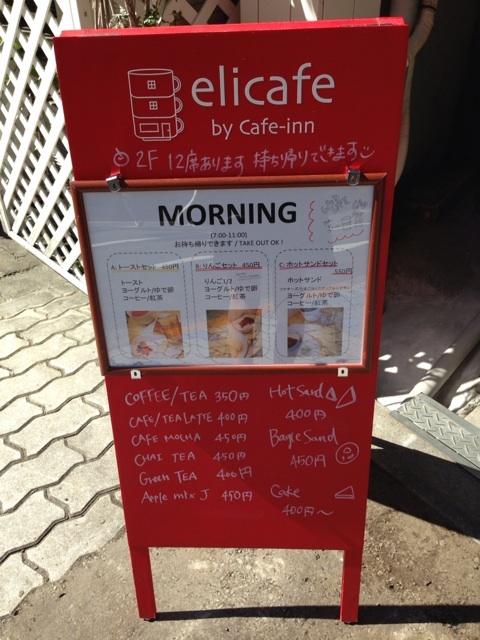 elicafe
by Cafe-inn
2F 12席あります 持ち帰りできます
MORNING
(7:00-11:00)
お持ち帰りできます / TAKE OUT OK !
A: トーストセット 450円
トースト
ヨーグルト/ゆで卵
コーヒー/紅茶
B: りんごセット 450円
りんご1/2
ヨーグルト/ゆで卵
コーヒー/紅茶
C: ホットサンドセット
550円
ホットサンド
ヨーグルト/ゆで卵
コーヒー/紅茶
COFFEE/TEA 350円
CAFE/TEA LATTE 400円
CAFE MOCHA 450円
CHAI TEA 450円
Green TEA 400円
Apple mix J 450円
Hot Sand
400円
Bagle Sand
450円
Cake
400円～